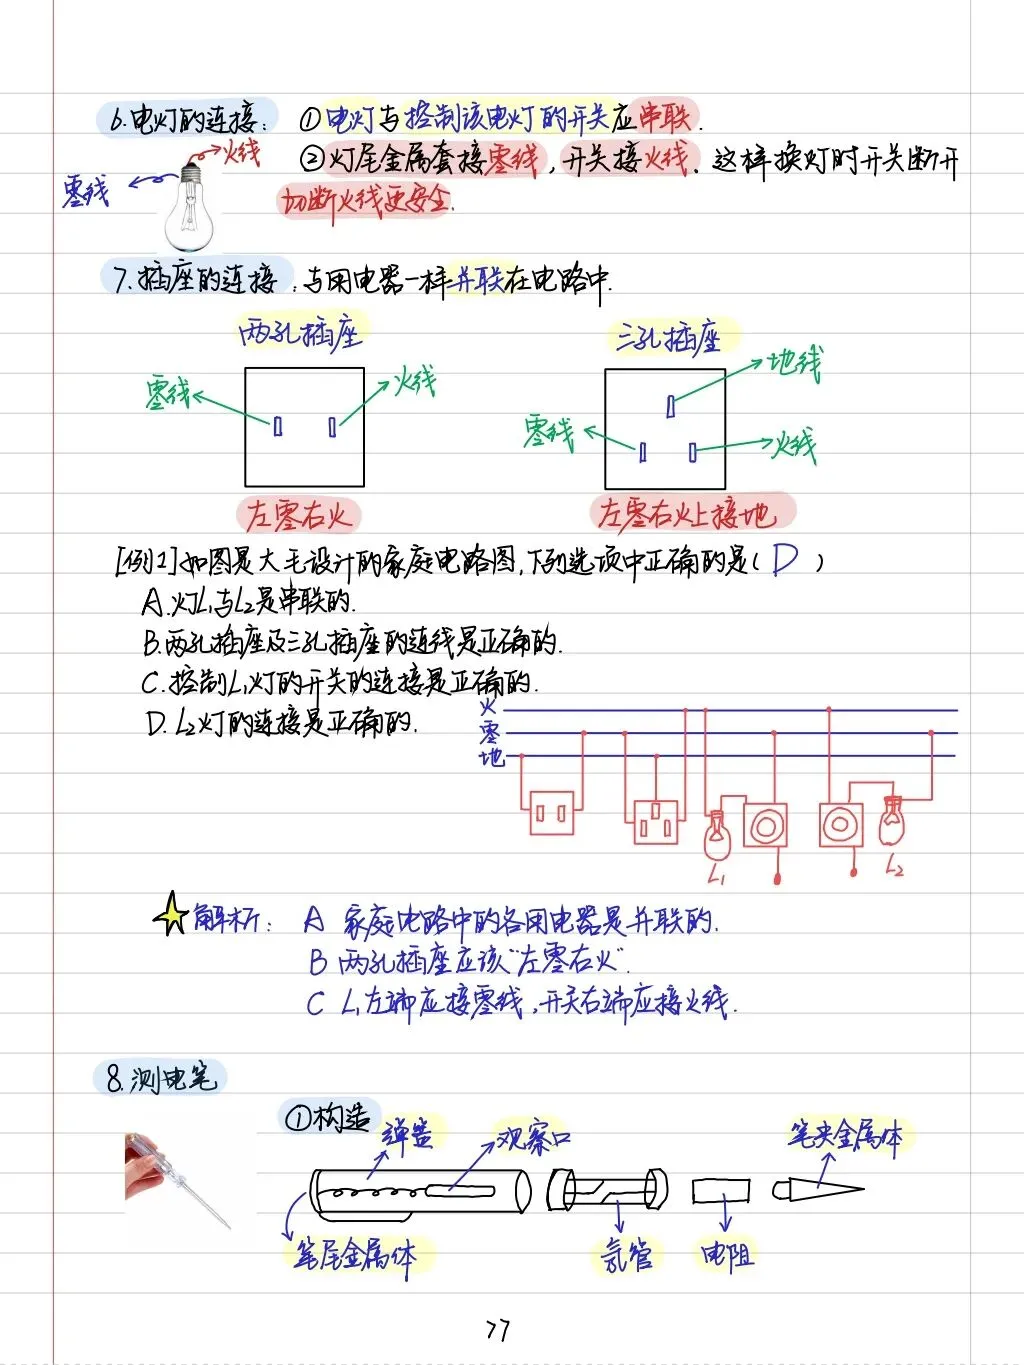 6.电灯的连接: ①电灯与控制该电灯的开关应串联.
火线
②灯尾金属套接零线,开关接火线.这样换灯时开关断开
零线
切断火线更安全.
7.插座的连接:与用电器一样并联在电路中.
两孔插座
三孔插座
零线
火线
地线
零线
火线
左零右火
左零右火上接地
[例1]如图是大毛设计的家庭电路图,下列选项中正确的是( D )
A.灯L₁与L₂是串联的.
B.两孔插座及三孔插座的连线是正确的.
C.控制L₁灯的开关的连接是正确的.
D.L₂灯的连接是正确的.
火
零
地
L₁
L₂
解析: A 家庭电路中的各用电器是并联的.
B 两孔插座应该"左零右火".
C L₁左端应接零线,开关右端应接火线.
8.测电笔
①构造
弹簧
观察口
笔尖金属体
笔尾金属体
氖管
电阻
77